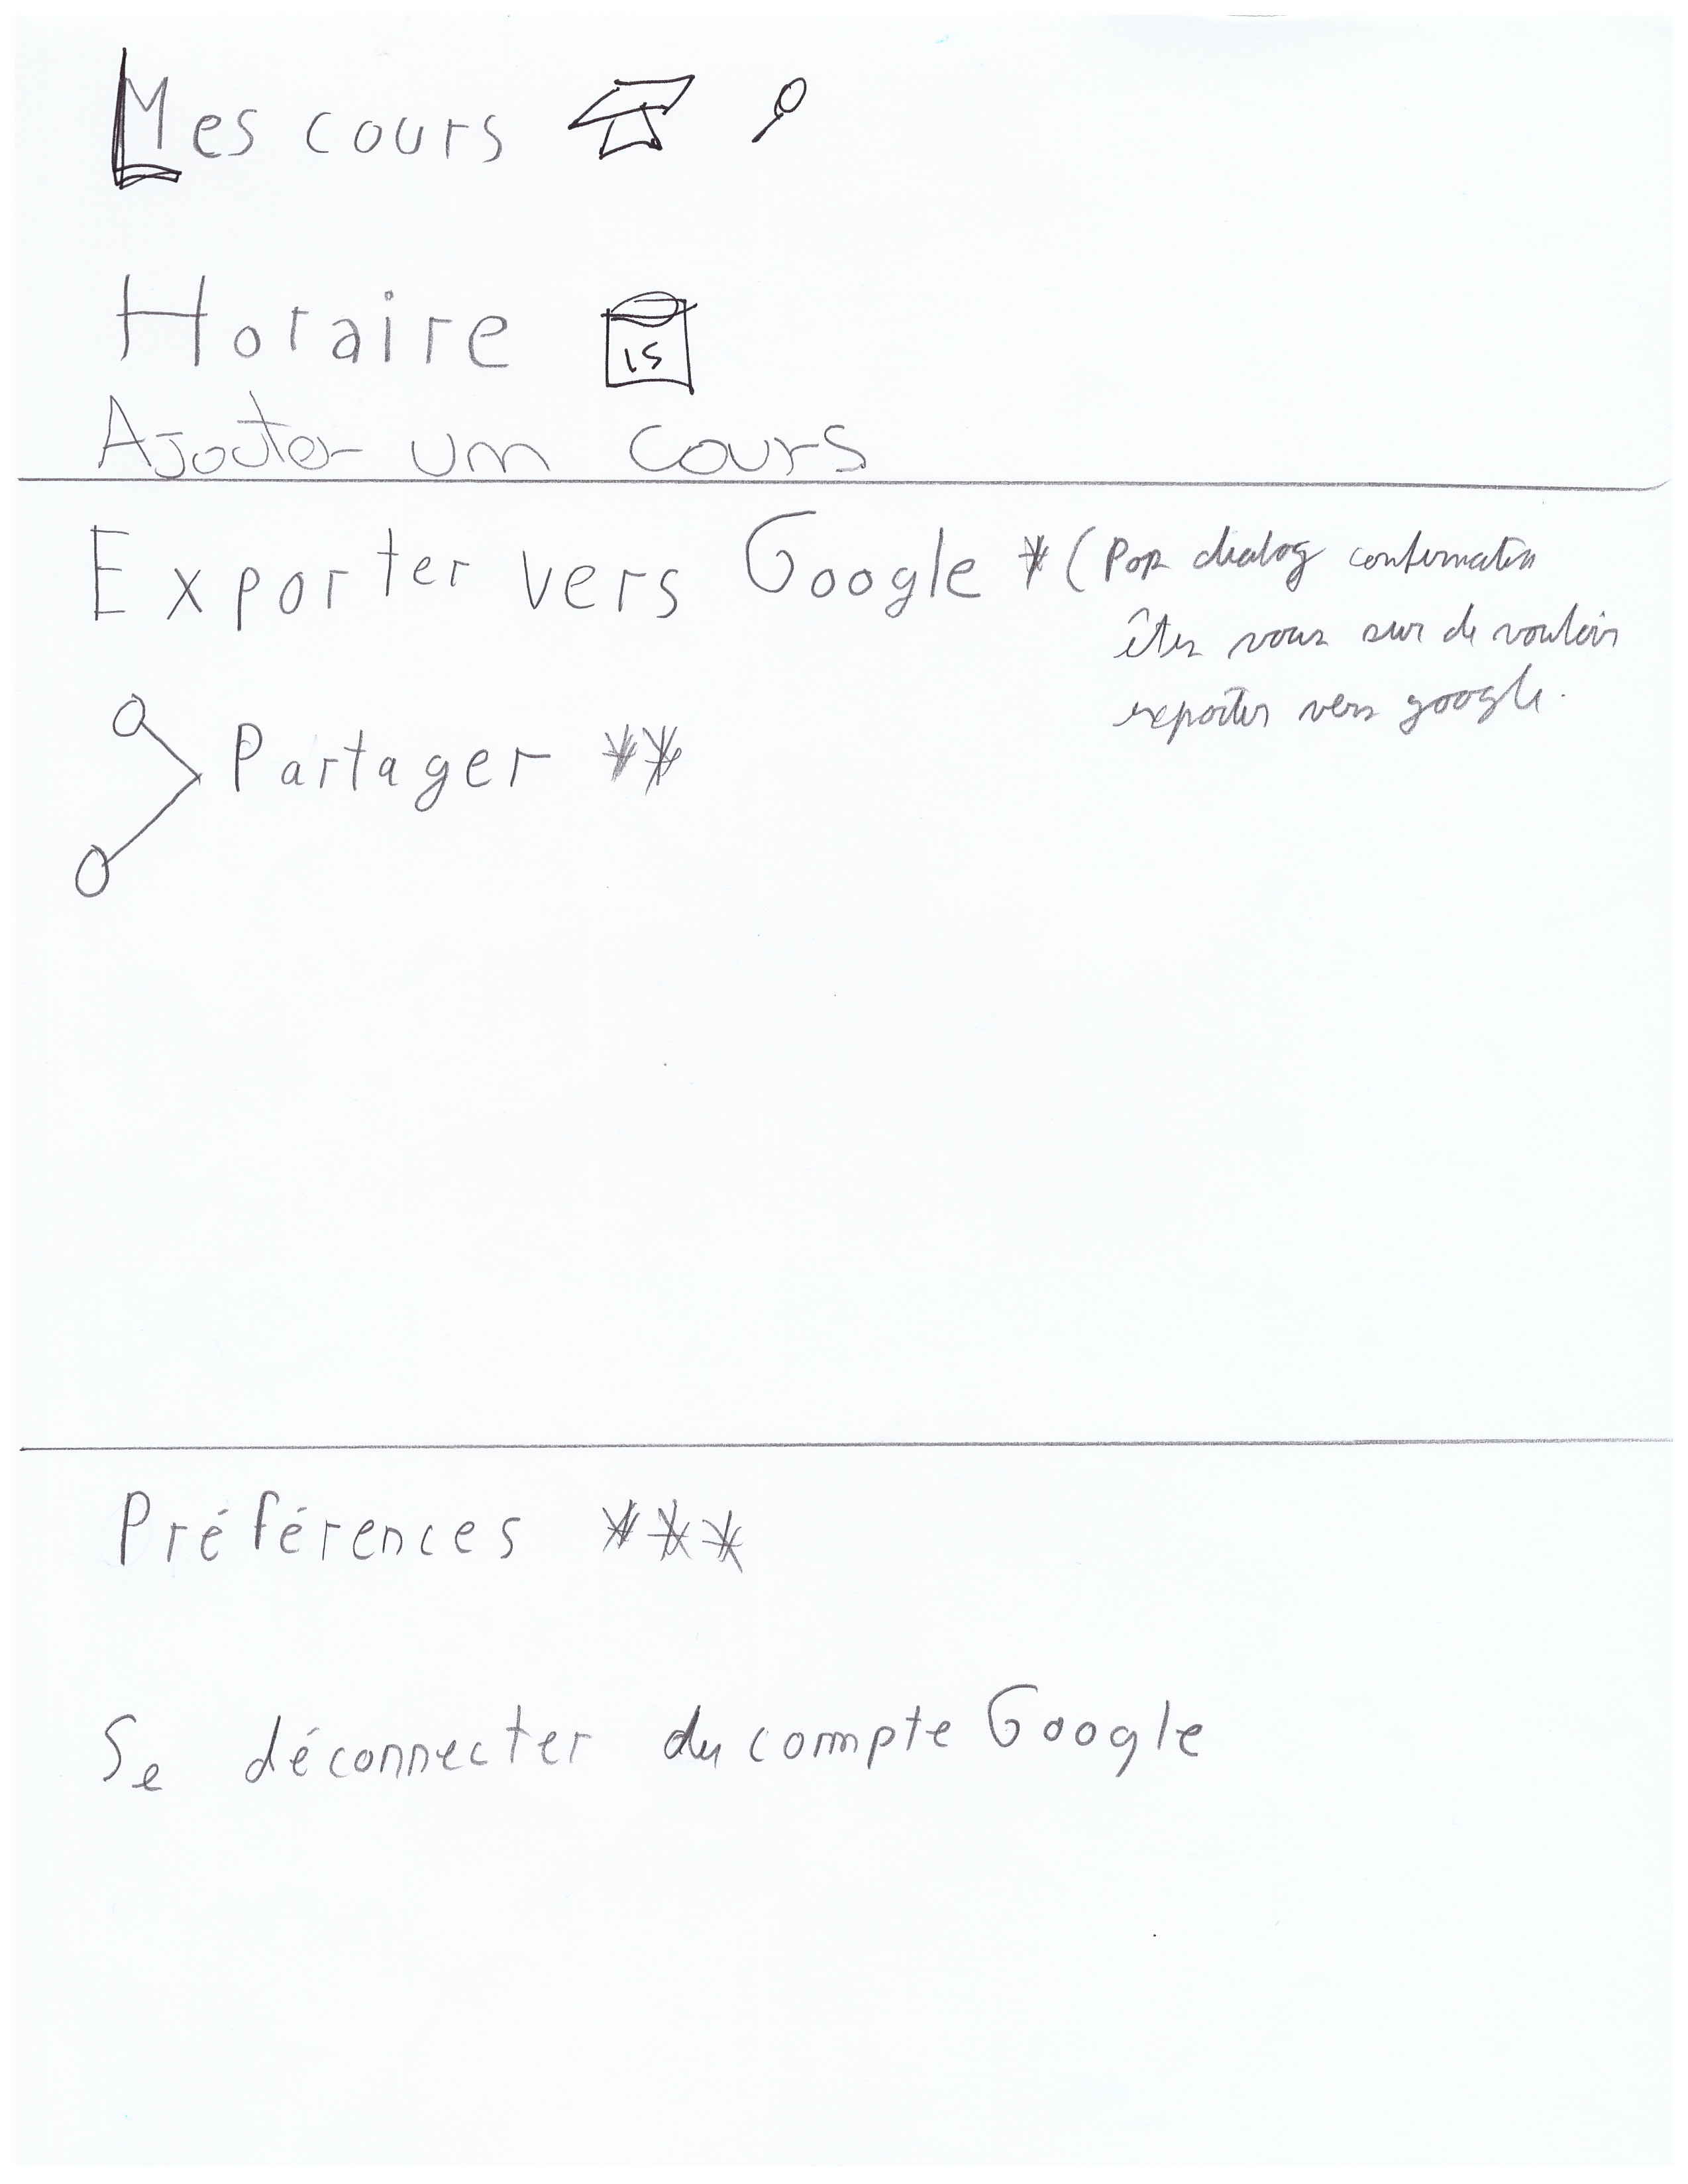 Mes cours
Horaire 15
Ajouter un cours
Exporter vers Google * (Pop dialog confirmation
êtes vous sur de vouloir
exporter vers google.
Partager **
Préférences ***
Se déconnecter du compte Google